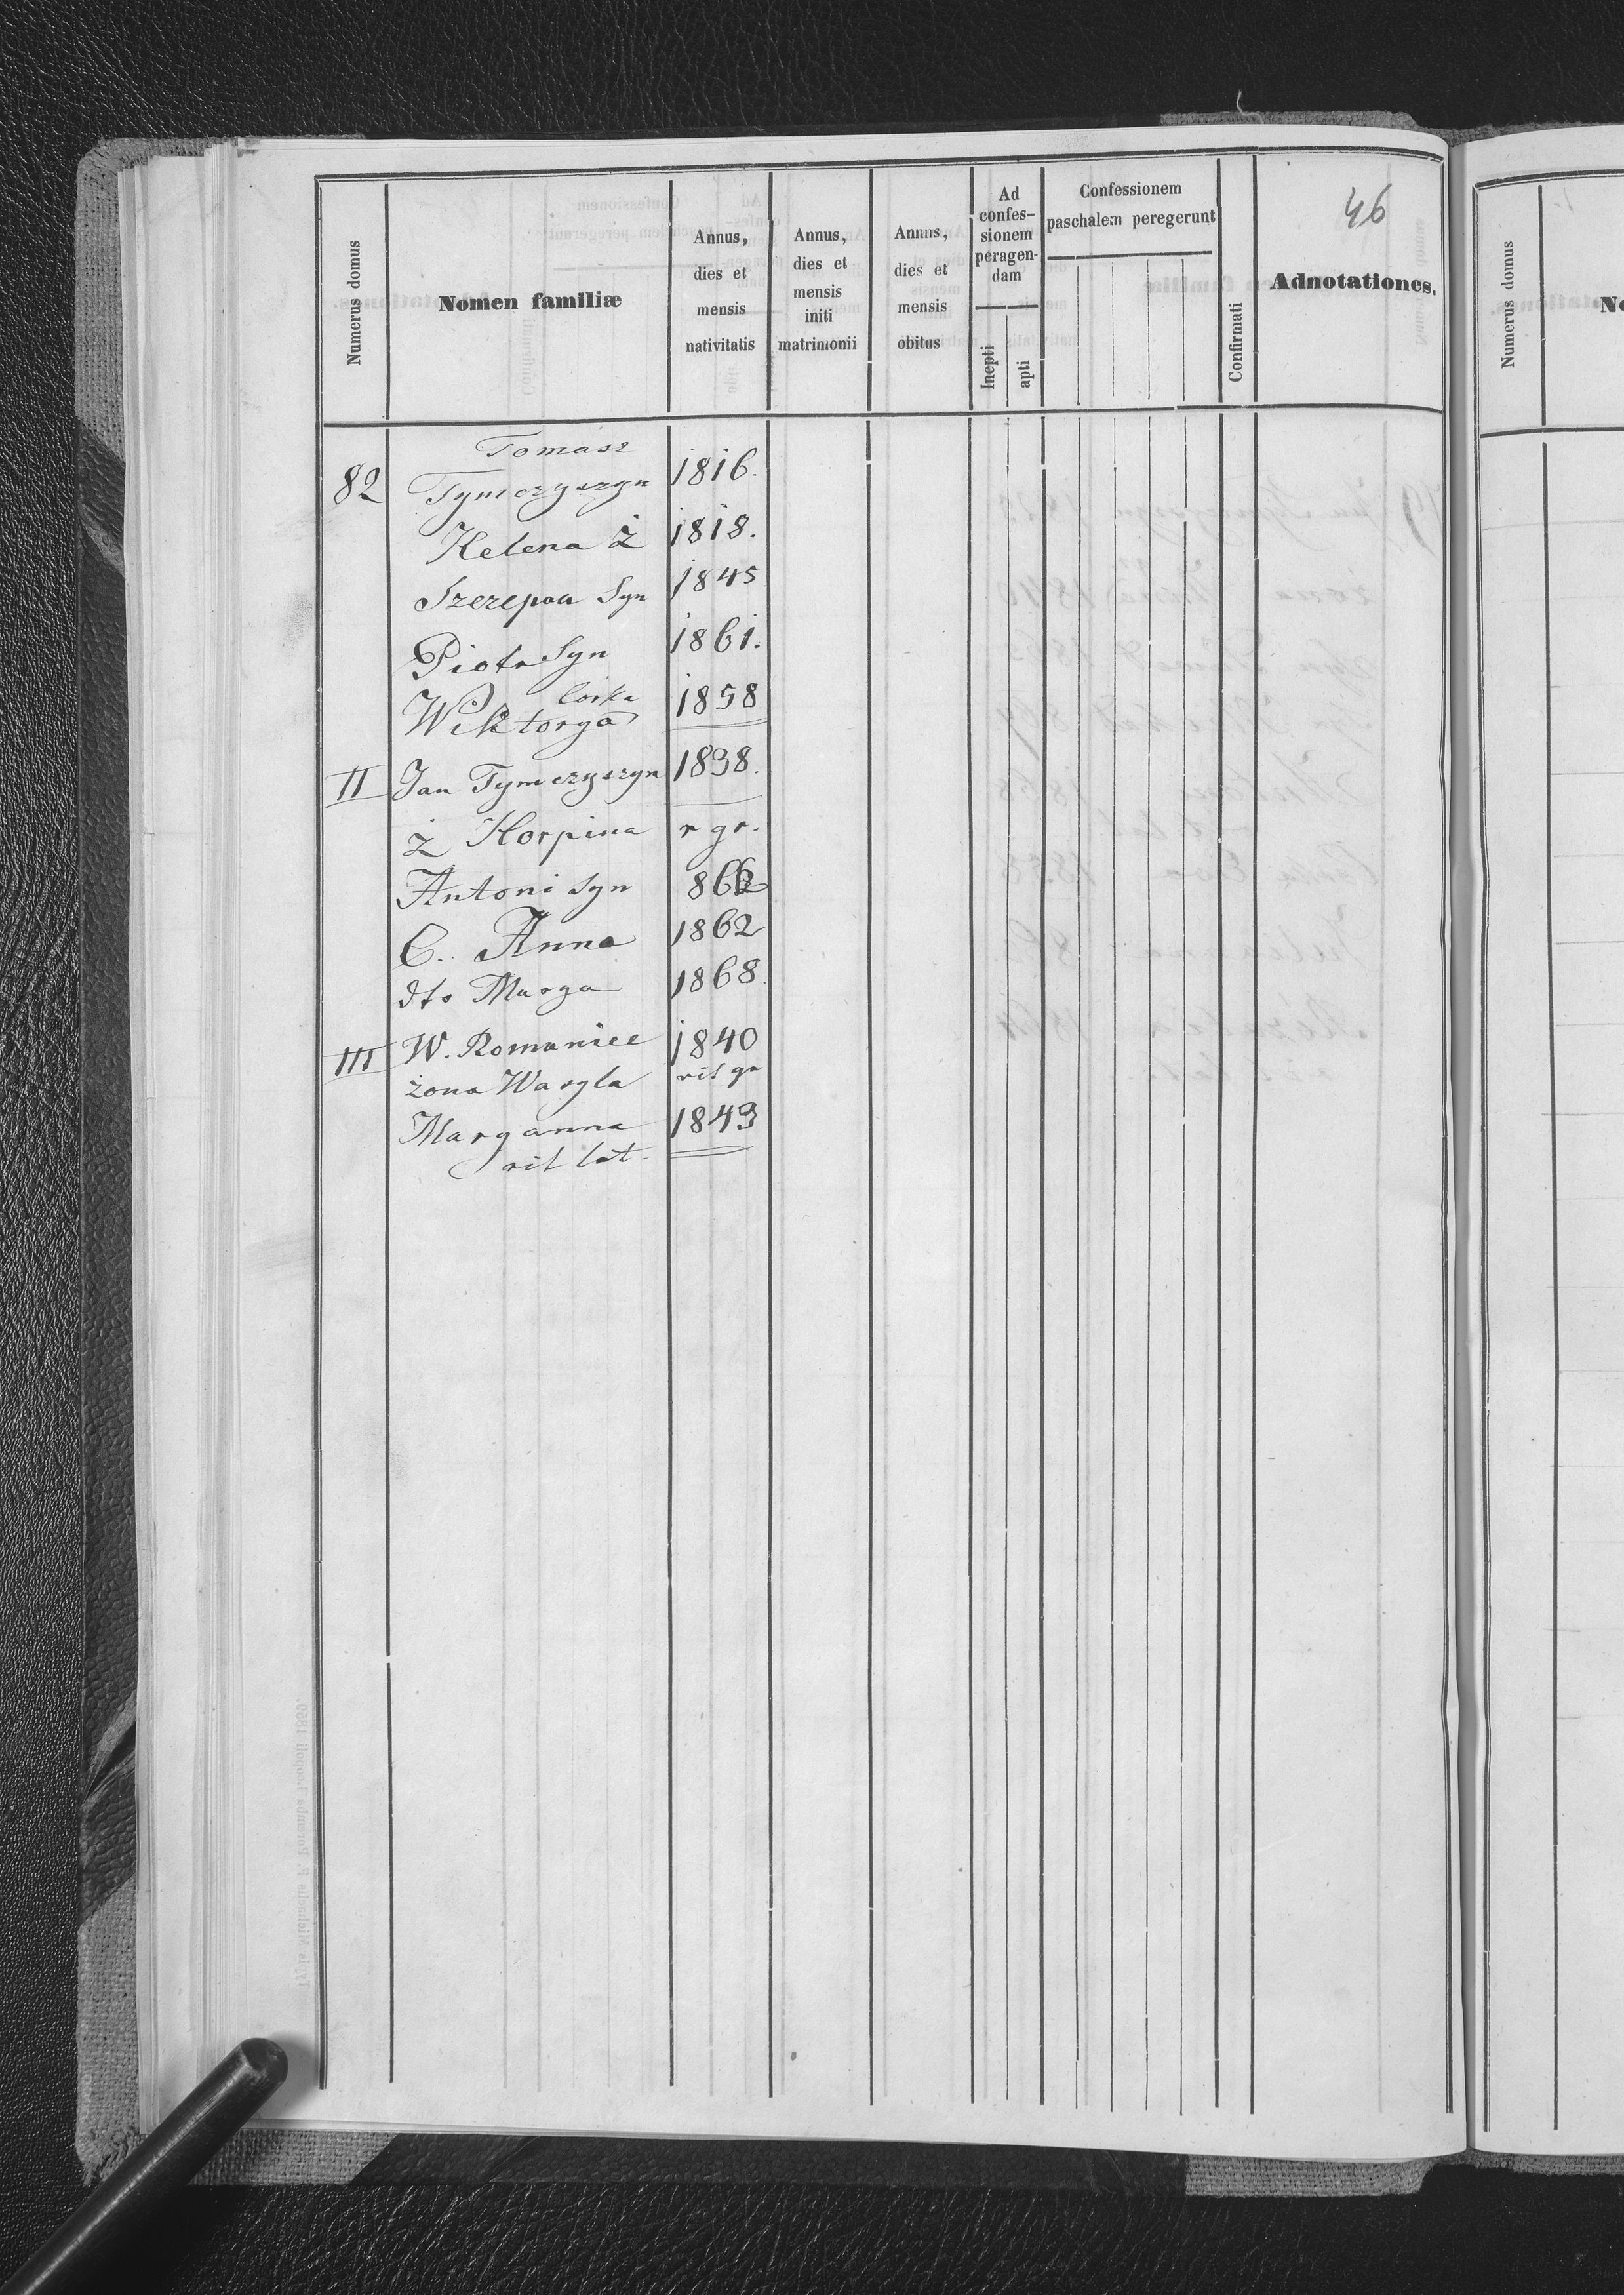 46
Numerus domus
Nomen familiæ
Annus, dies et mensis nativitatis
Annus, dies et mensis initi matrimonii
Annus, dies et mensis obitus
Ad confes-sionem peragen-dam
Inepti
apti
Confessionem paschalem peregerunt
Confirmati
Adnotationes.
Numerus domus
Tomasz
82 Tymczyszyn 1816.
Helena ż 1818.
Szczepan Syn 1845
Piotr Syn 1861.
Córka
Wiktorya 1858
II Jan Tymczyszyn 1838.
ż Horpina r gr.
Antoni Syn 866
C. Anna 1862
dto Marya 1868
III W. Romaniec 1840
żona Wasyla rit gr
Maryanna 1843
rit lat.